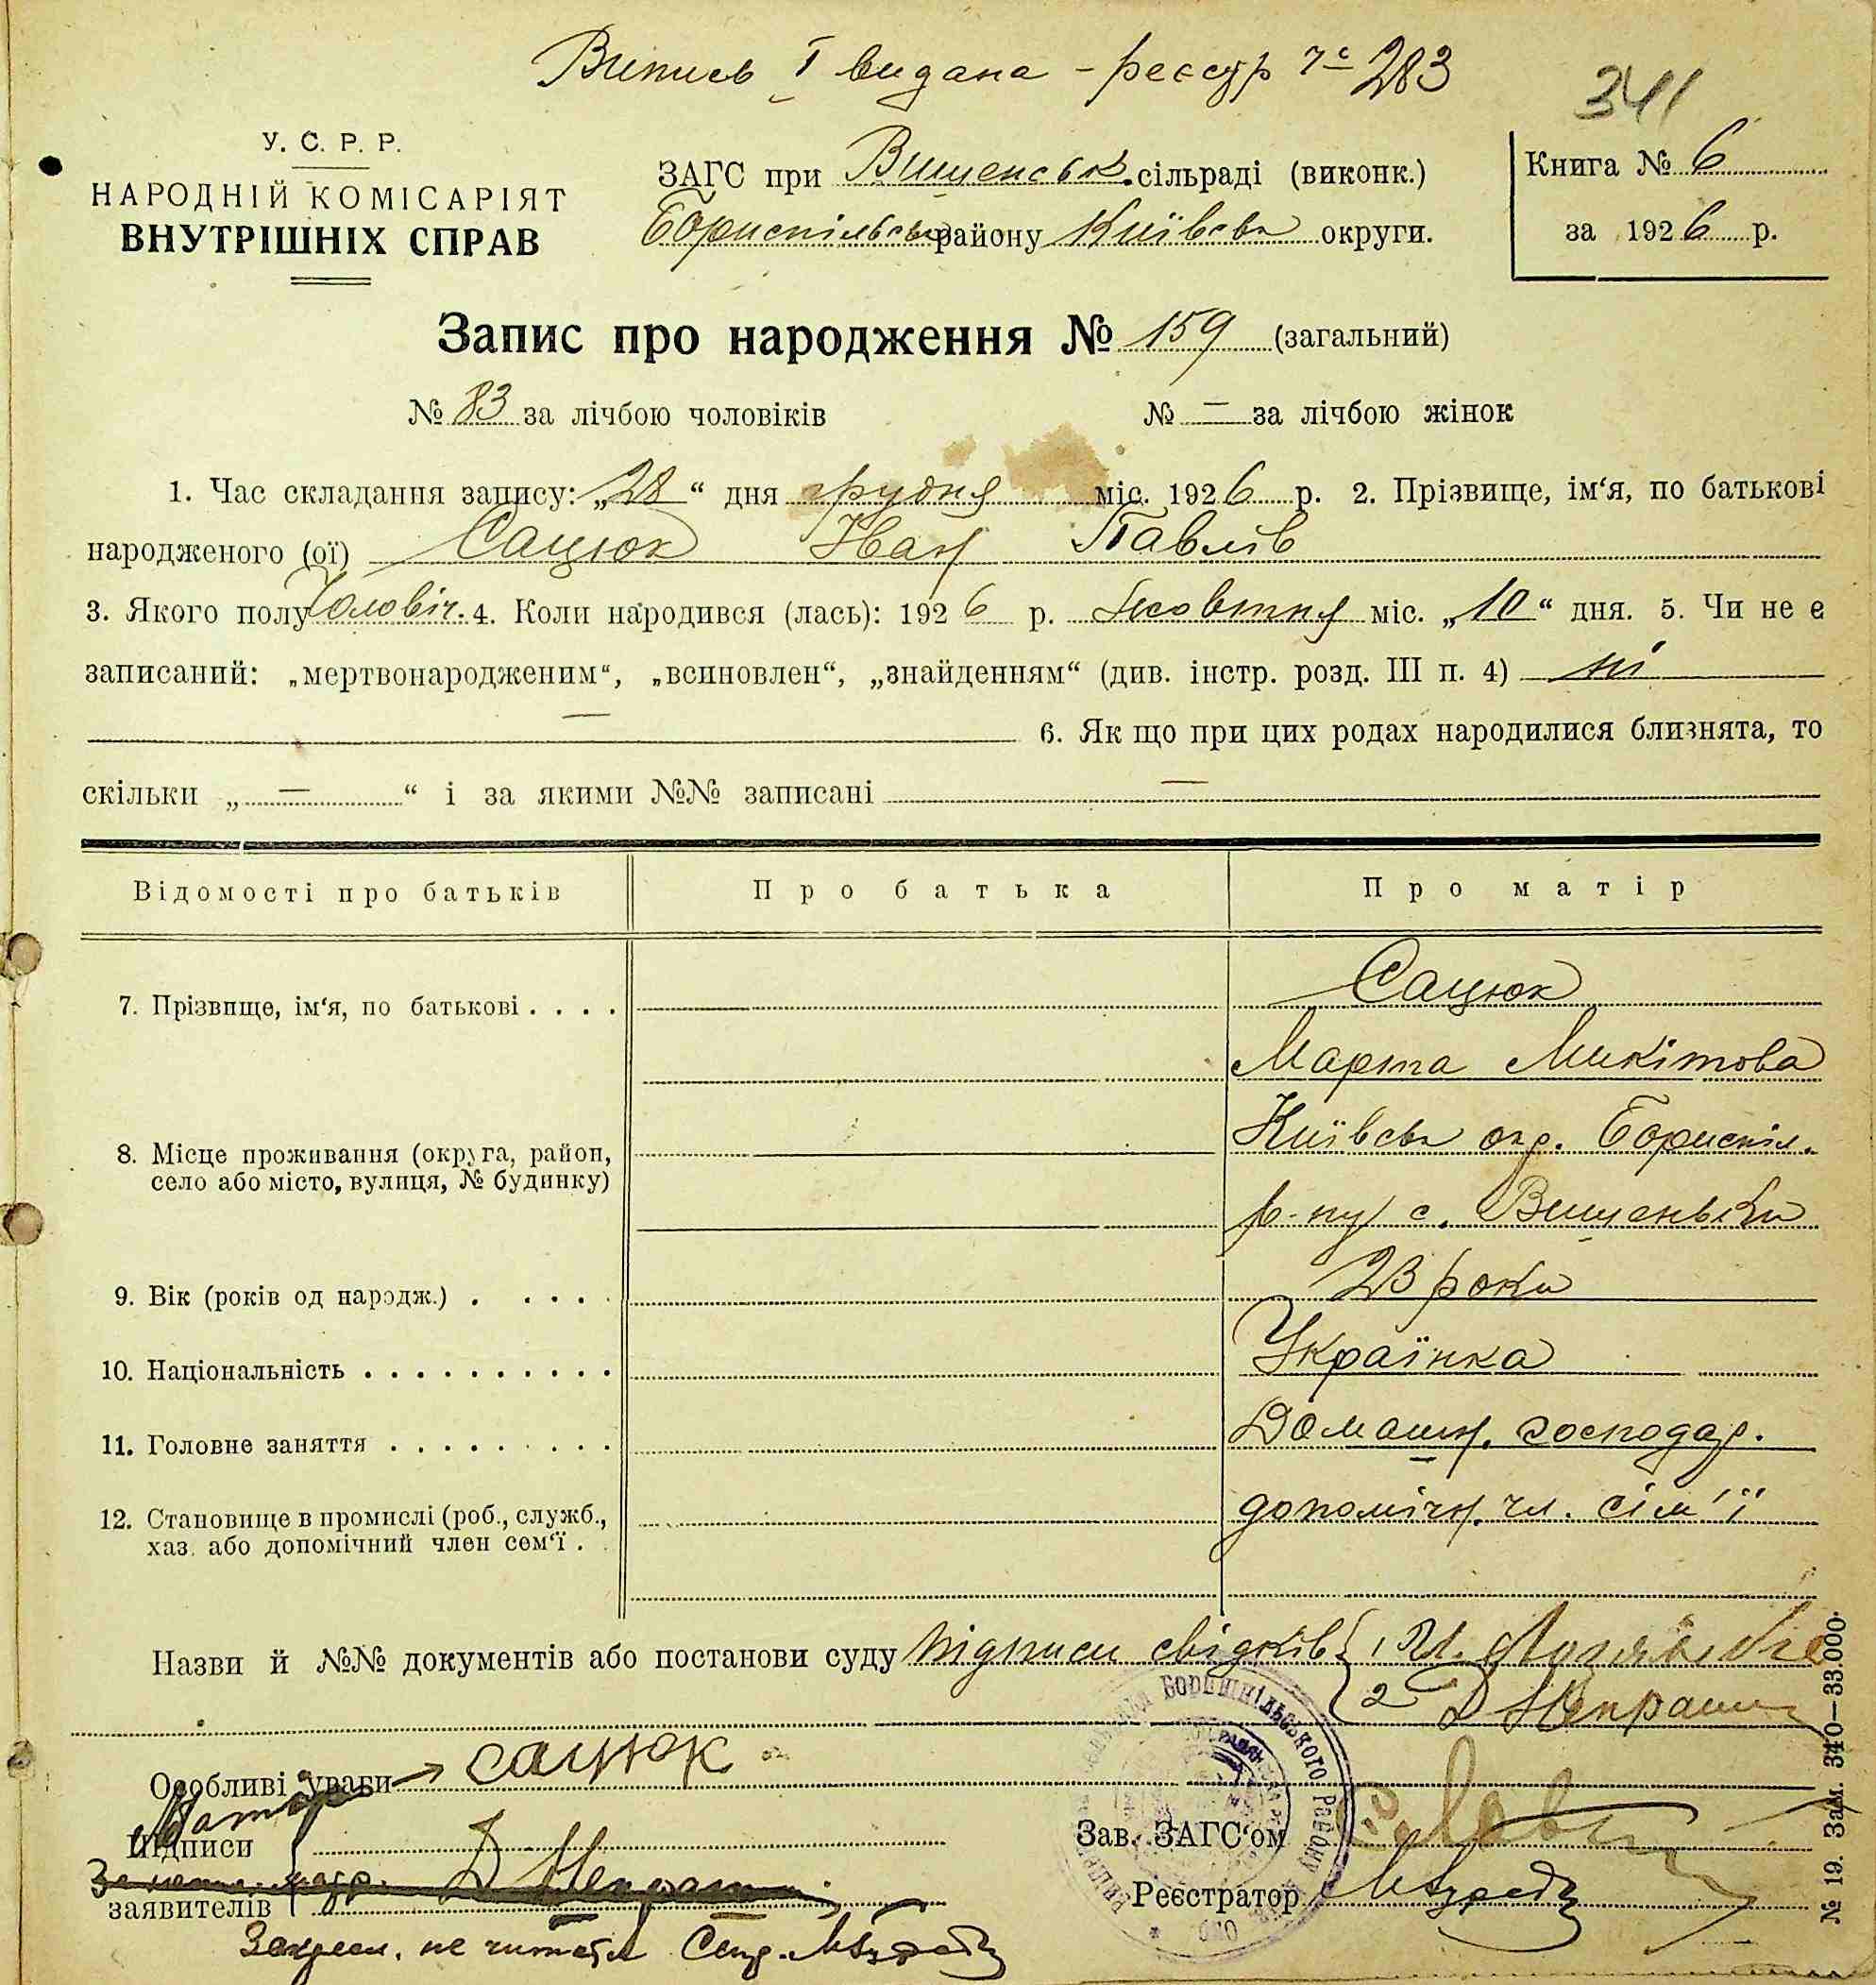 Випись І видана - реєстр № 283
341
У. С. Р. Р.
НАРОДНІЙ КОМІСАРІЯТ
ВНУТРІШНІХ СПРАВ
ЗАГС при Вишенськ. сільраді (виконк.)
Бориспільськ району Київськ округи.
Книга № 6
за 1926 р.
Запис про народження № 159 (загальний)
№ 83 за лічбою чоловіків № — за лічбою жінок
1. Час складання запису: „28“ дня грудня міс. 1926 р. 2. Прізвище, ім‘я, по батькові
народженого (ої) Сацюк Іван Павлів
3. Якого полу Чоловіч. 4. Коли народився (лась): 1926 р. жовтня міс. „10“ дня. 5. Чи не є
записаний: „мертвонародженим“, „всиновлен“, „знайденням“ (див. інстр. розд. III п. 4) ні
— 6. Як що при цих родах народилися близнята, то
скільки „ — “ і за якими №№ записані —
Відомості про батьків Про батька Про матір
7. Прізвище, ім‘я, по батькові . . . . Сацюк
Марта Микітова
8. Місце проживання (округа, район, Київськ окр. Бориспіл.
село або місто, вулиця, № будинку) р-ну с. Вишеньки
9. Вік (років од народж.) . . . . . 23 роки
10. Національність . . . . . . . . . . Українка
11. Головне заняття . . . . . . . . . Домашн. господар.
12. Становище в промислі (роб., служб., допомічн. чл. сім'ї
хаз. або допомічний член сем‘ї .
Назви й №№ документів або постанови суду підписи свідків { 1
2 Д Непраш
Особливі уваги → сацюк
Матір
Підписи
Зав. ЗАГС‘ом
заявителів Д Непраш
Реєстратор
Закресл. не читати Секр.
БОРИСПІЛЬСЬКОГО РАЙОНУ
№ 19. Зам. 340—33.000.